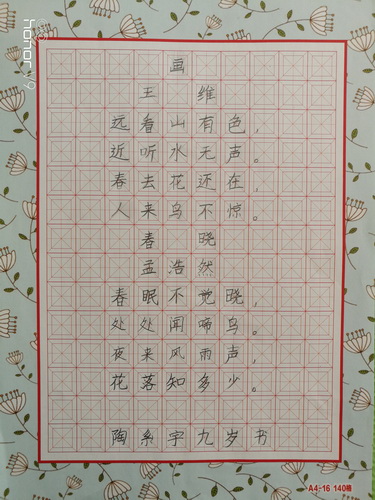 画
王 维
远看山有色，
近听水无声。
春去花还在，
人来鸟不惊。
春 晓
孟浩然
春眠不觉晓，
处处闻啼鸟。
夜来风雨声，
花落知多少。
陶系宇九岁书
A4-16 140格
honor 9